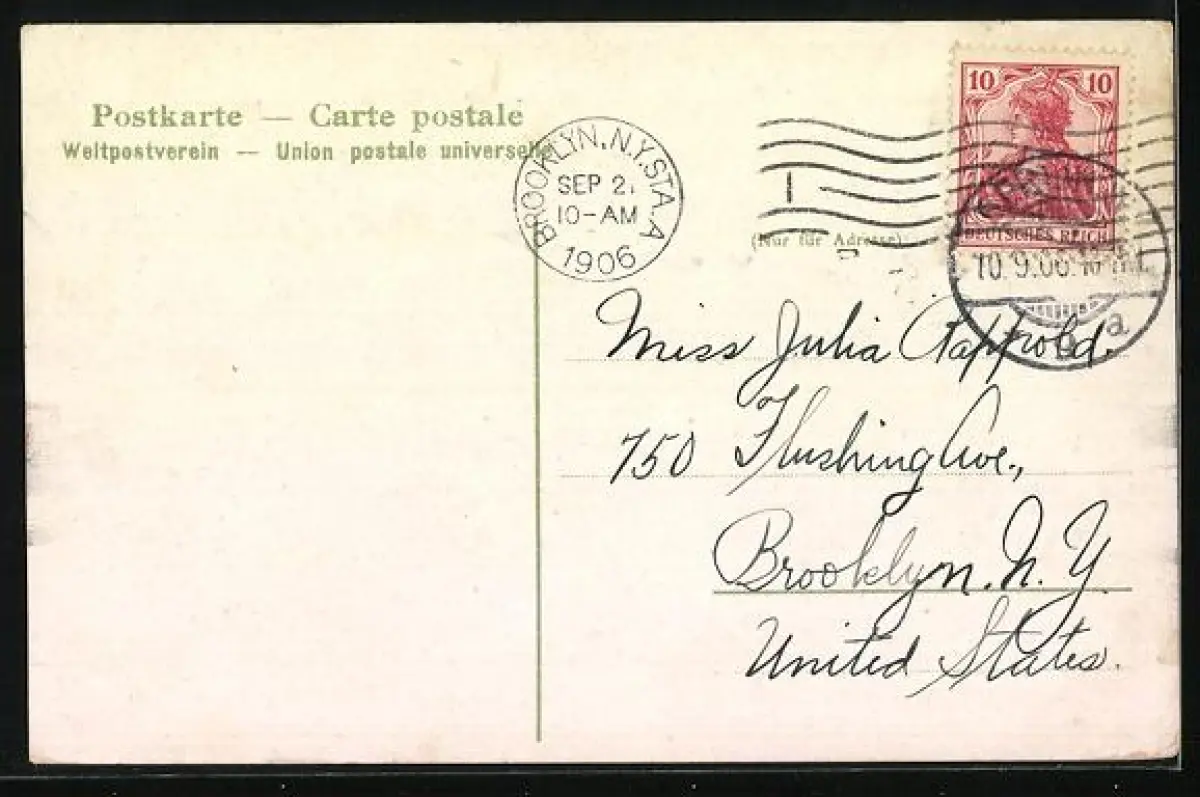 Postkarte — Carte postale
Weltpostverein — Union postale universelle
BROOKLYN, N.Y. STA. A
SEP 21
10-AM
1906
1
10 10
DEUTSCHES REICH
10.9.06.
a
(Nur für Adresse)
Miss Julia Rappold.
750 Flushing Ave.,
Brooklyn. N. Y.
United States.